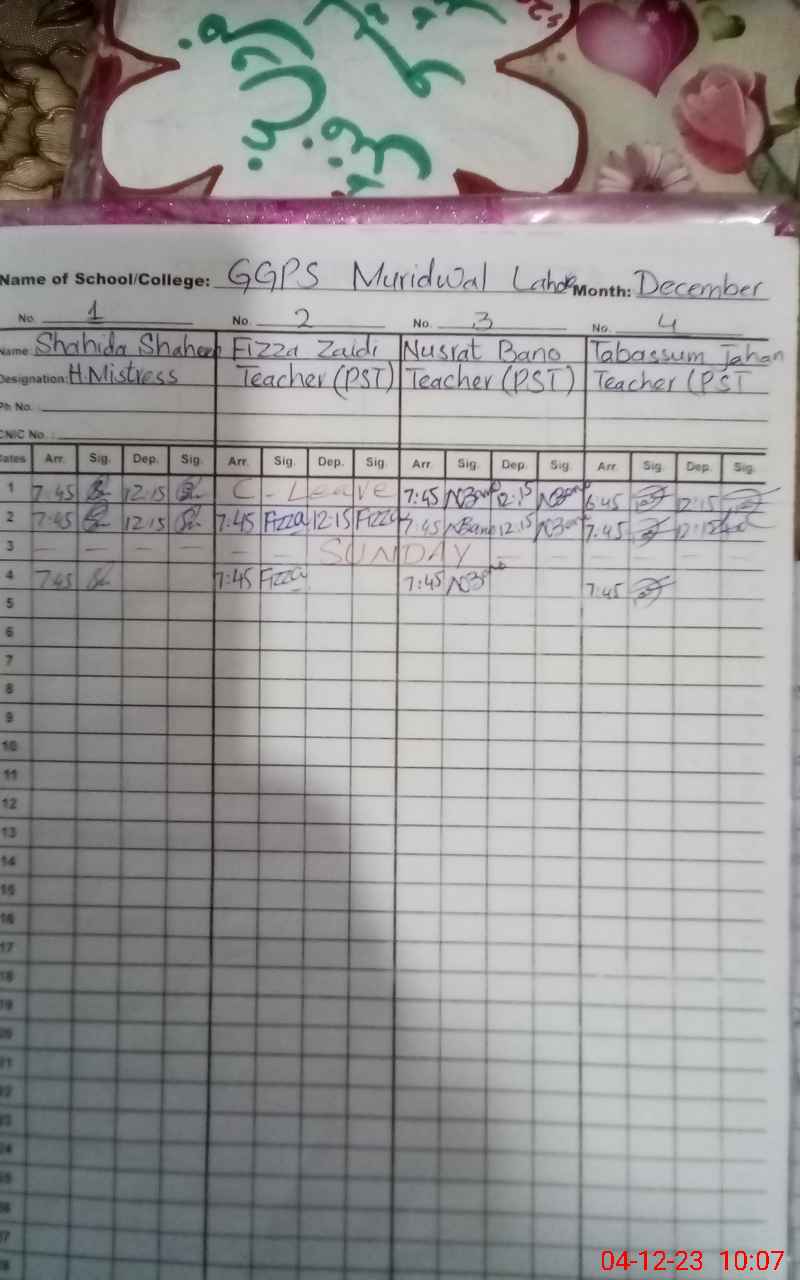 Name of School/College: GGPS Muridwal Lahore Month: December
No. 1 No. 2 No. 3 No. 4
Name: Shahida Shaheen Fizza Zaidi Nusrat Bano Tabassum Jahan
Designation: H.Mistress Teacher (PST) Teacher (PST) Teacher (PST
Ph No.:
CNIC No.:
Dates Arr. Sig. Dep. Sig. Arr. Sig. Dep. Sig. Arr. Sig. Dep. Sig. Arr. Sig. Dep. Sig.
1 7:45 12:15 C - Leave 7:45 NBano 12:15 NBano 6:45 12:15
2 7:45 12:15 7:45 Fizza 12:15 Fizza 7:45 NBano 12:15 NBano 7:45 12:15
3 — — — — — — SUNDAY — — —
4 7:45 7:45 Fizza 7:45 NBano 7:45
5
6
7
8
9
10
11
12
13
14
15
16
17
18
19
20
21
22
23
24
25
26
27
28
04-12-23 10:07